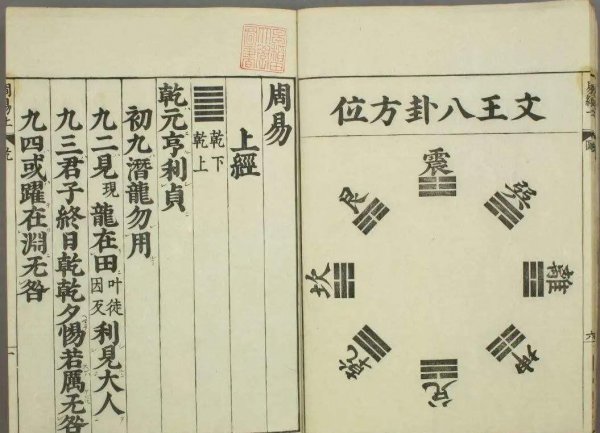 文王八卦方位
震
巽
離
坤
兌
乾
坎
艮
六
周易
上經
乾下
乾上
乾元亨利貞
初九潛龍勿用
九二見現龍在田叶徒因反利見大人
九三君子終日乾乾夕惕若厲无咎
九四或躍在淵无咎
一